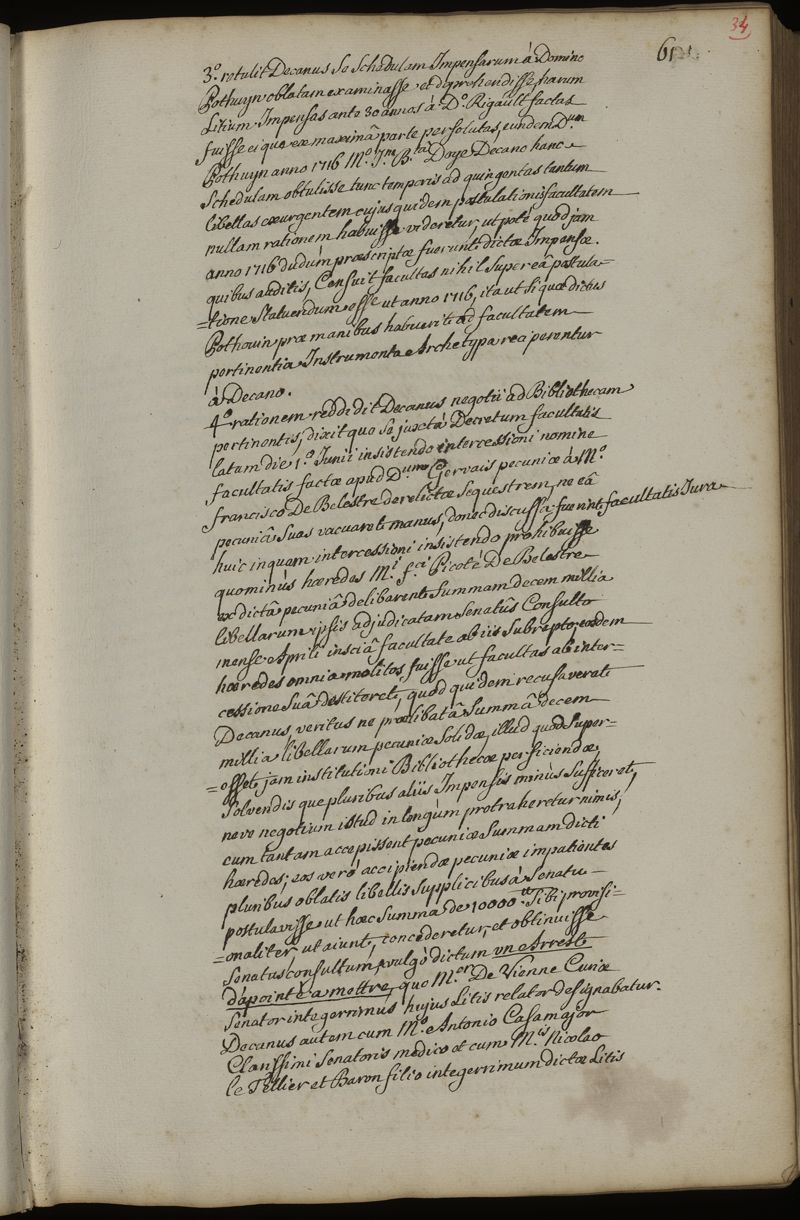 34
611
3.º retulit Decanus Se Schedulam Impensarum à Domino
Pothuyn oblatam examinasse et deprehendisse, harum
Litium Impensas ante 30 annos à D.º Rigault factas
fuisse eique ex maximâ parte persolutas, eundem D.um
Pothuyn anno 1716 M.º J.ne B.ta Doye Decano hanc
Schedulam obtulisse tunc temporis ad quingentas tantum
libellas exurgentem cujus quidem postulationis facultatem
nullam rationem habuisse videretur, ut poté quod jam
anno 1716 dudùm præscriptæ fuerunt dictæ Impensæ.
quibus auditis, Censuit facultas nihil Super eâ postula=
=tione Statuendum esse ut anno 1716, ita ut si quæ dictus
Pothouin præ manibus habuerit ad facultatem
pertinentia Instrumenta Archetypa reciperentur
à Decano.
4.º rationem reddidit Decanus negotii ad Bibliothecam
pertinentis, dixitque Se juxtà Decretum facultatis
latam die 1.º Junii insistendo intercessioni nomine
facultatis factæ apud D.um Gervais pecuniæ à M.º
francisco De Belestre derelictæ Sequestrem, ne eâ
pecuniâ Suas vacuaret manus, donec discussa fuerint facultatis Jura
huic inquam intercessioni insistendo prohibuisse
quominùs hæredes M.i f.ci Picoté De Belestre
ex dictâ pecuniâ delibarent Summam decem millia
libellarum ipsis adjudicatam Senatûs Consulto
mense Aprili insciâ facultate ab iis Subrepto, eosdem
hæredes omnia molitos fuisse ut facultas ab inter=
cessione Suâ destiteret, quod quidem recusaverat
Decanus, veritus ne prælibatâ Summâ decem
millia libellarum pecuniæ Solidæ, illud quod Super=
=esset, jam institutioni Bibliothecæ perficiendæ,
Solvendisque pluribus aliis Impensis minùs Sufficeret,
neve negotium istud in longùm protraheretur nimis,
cum tantam accepissent pecuniæ Summam dicti
hæredes; eos verò accipiendæ pecuniæ impatientes
pluribus oblatis libellis Supplicibus à Senatu
postulavisse ut hæc Summa de 10000 tt Sibi provisi=
=onaliter, ut aiunt, concederetur, et obtinuisse
Senatusconsultum, vulgò dictum un Arrest
d'apointé a mettre, quo M.er De Vienne Curiæ
Senator integerrimus hujus Litis relator designabatur.
Decanus autem cum M.º Antonio Casamajor
Clarissimi Senatoris medico et cum M.is Nicolao
le Tellier et Baron filio integerrimum dictæ Litis